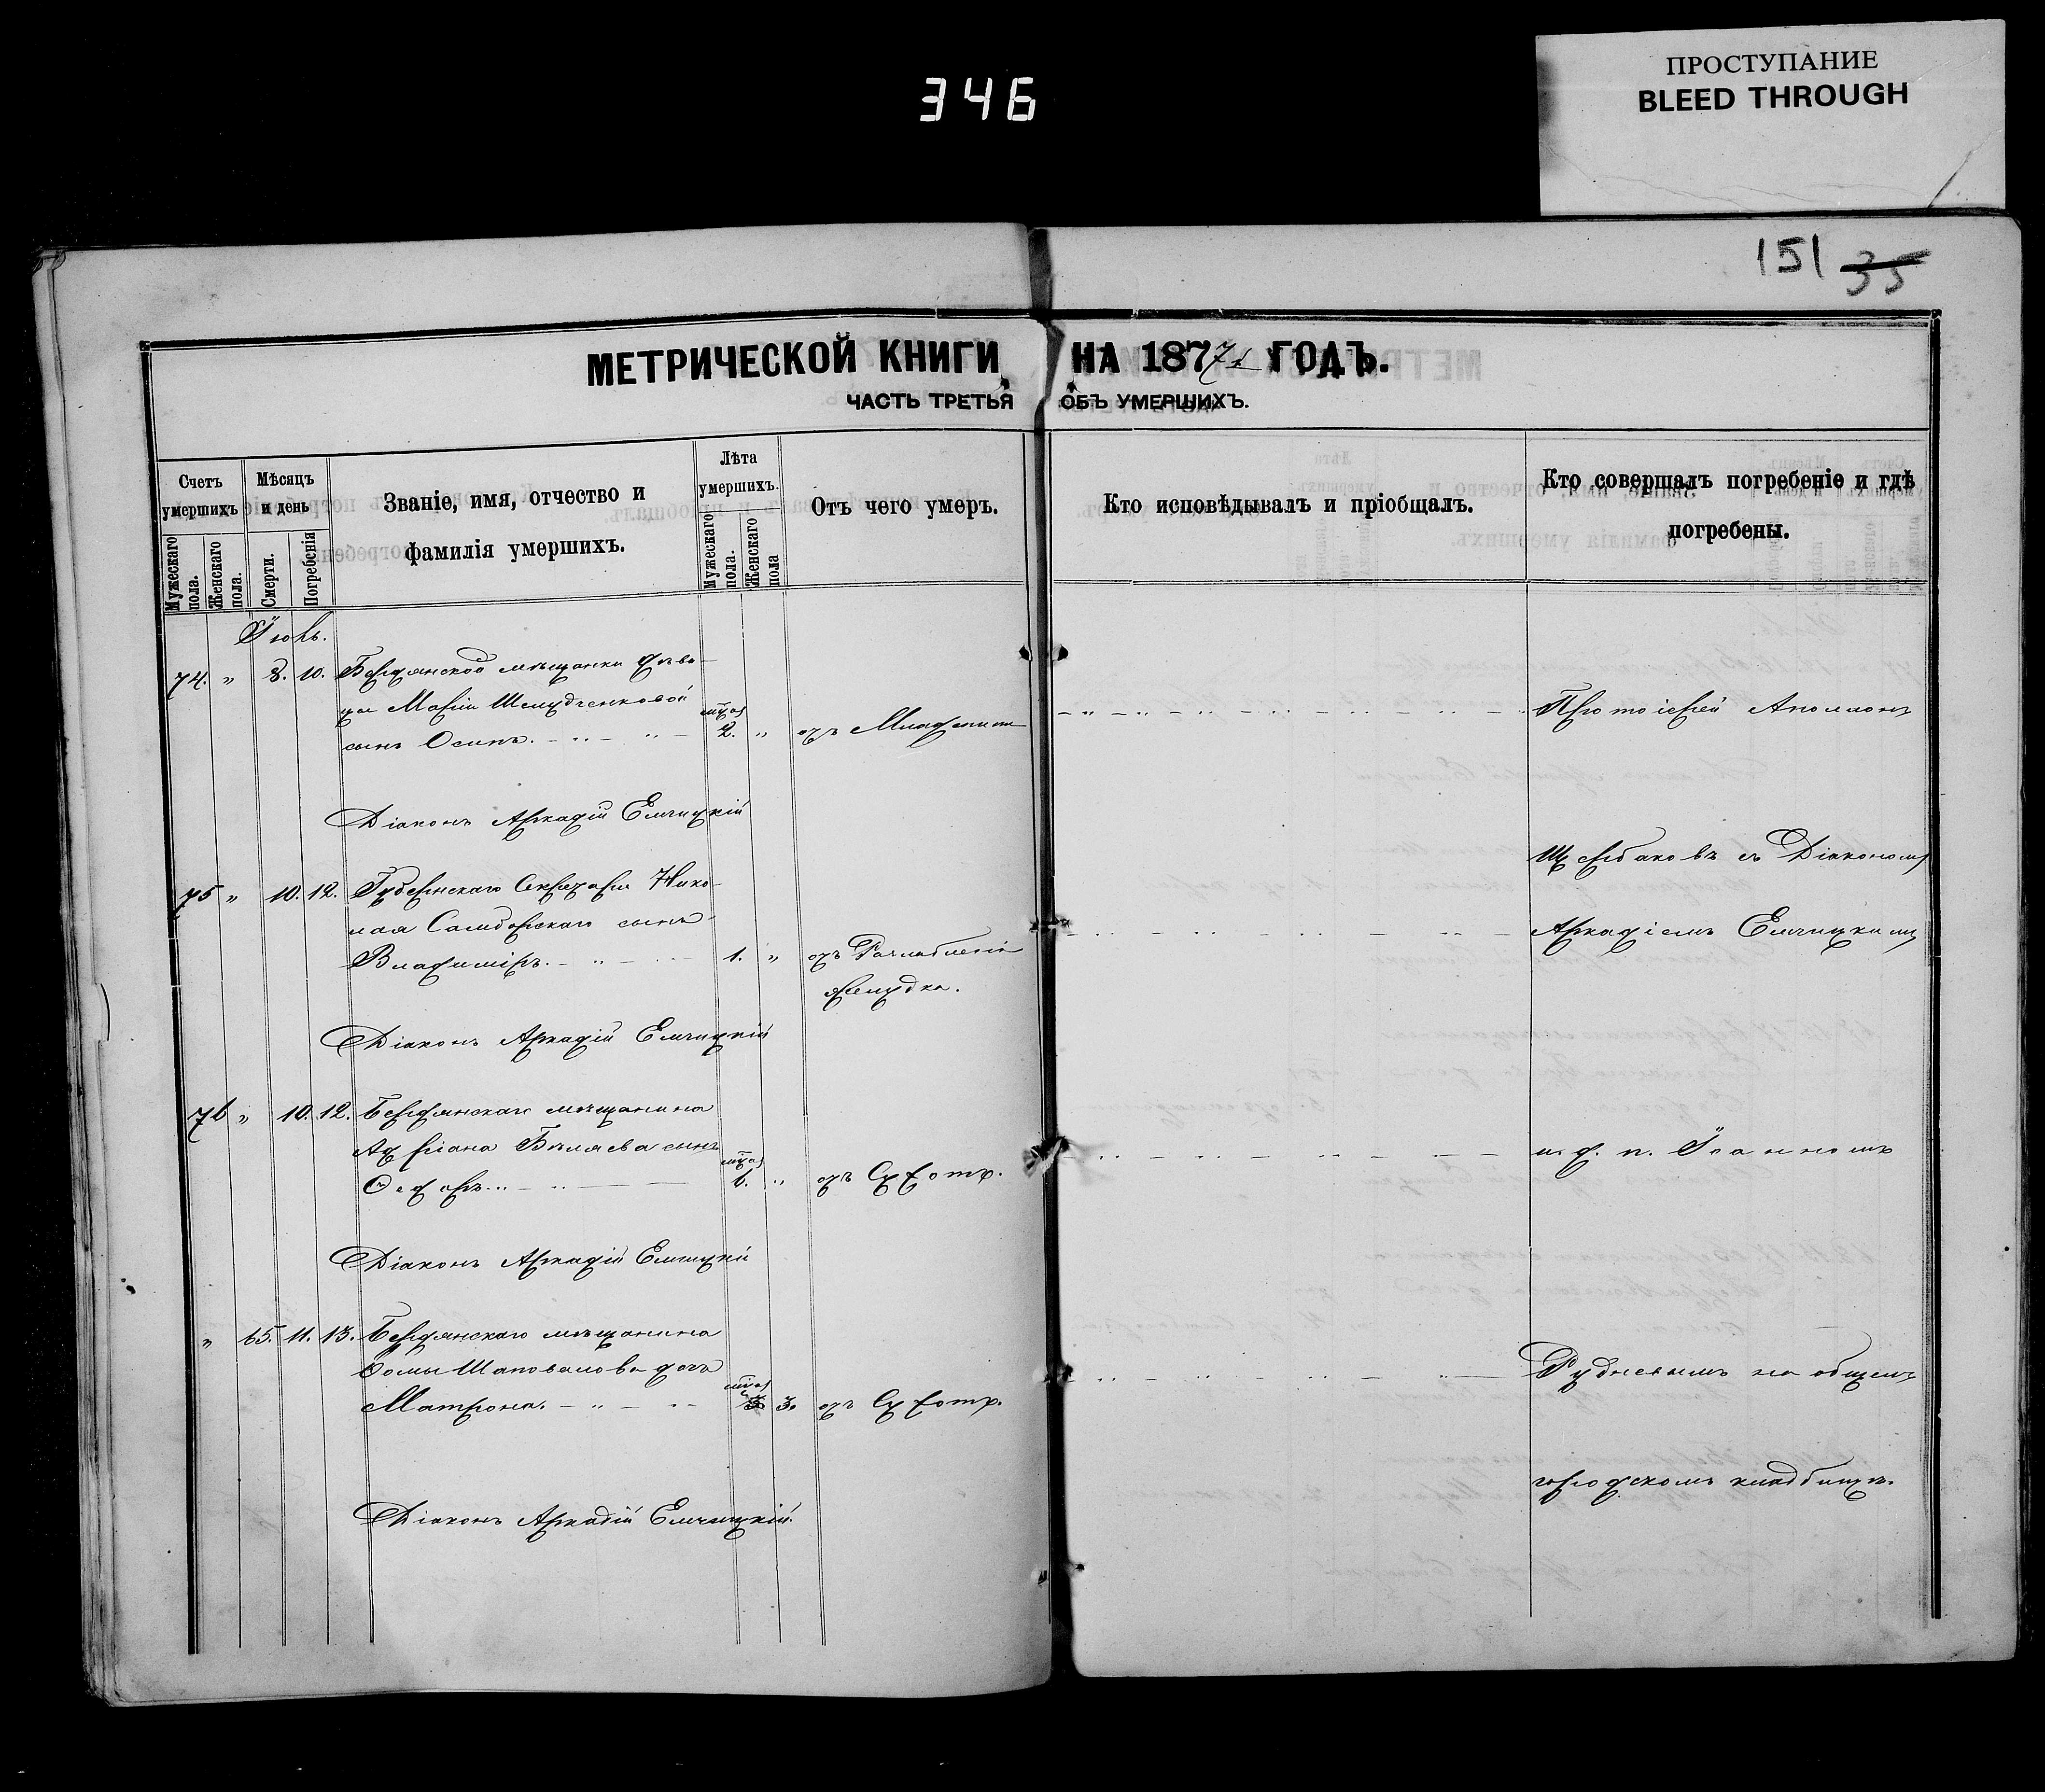 346
ПРОСТУПАНИЕ
BLEED THROUGH
151 35
МЕТРИЧЕСКОЙ КНИГИ НА 1877 ГОДЪ.
ЧАСТЬ ТРЕТЬЯ ОБЪ УМЕРШИХЪ.
Счетъ умершихъ
Мужескаго пола.
Женскаго пола.
Мѣсяцъ и день
Смерти.
Погребенія
Званіе, имя, отчество и
фамилія умершихъ.
Лѣта умершихъ.
Мужескаго пола.
Женскаго пола
Отъ чего умеръ.
Кто исповѣдывалъ и пріобщалъ.
Кто совершалъ погребеніе и гдѣ
погребены.
74. " 8. 10. Бердянской мѣщанки дѣви-
цы Маріи Шелудченковой
сынъ Осипъ. 2. " отъ
Протоіерей Аполлонъ
Діаконъ Аркадій Емчицкій
Щербаковъ съ Діакономъ
75 " 10. 12. Губернскаго Секретаря Нико-
лая Самборскаго сынъ
Владиміръ. 1. " отъ Разслабленія
желудка.
Аркадіемъ Емчицкимъ
Діаконъ Аркадій Емчицкій
76 " 10. 12. Бердянскаго мѣщанина
Адріана Бѣляева сынъ
Ѳедоръ. 6. " отъ Сухотр.
и. д. п. Іоанномъ
Діаконъ Аркадій Емчицкій
" 65. 11. 13. Бердянскаго мѣщанина
Ѳомы Шаповалова дочь
Матрона. 3. отъ Сухотр.
Рудневымъ на общемъ
городскомъ кладбищѣ.
Діаконъ Аркадій Емчицкій.